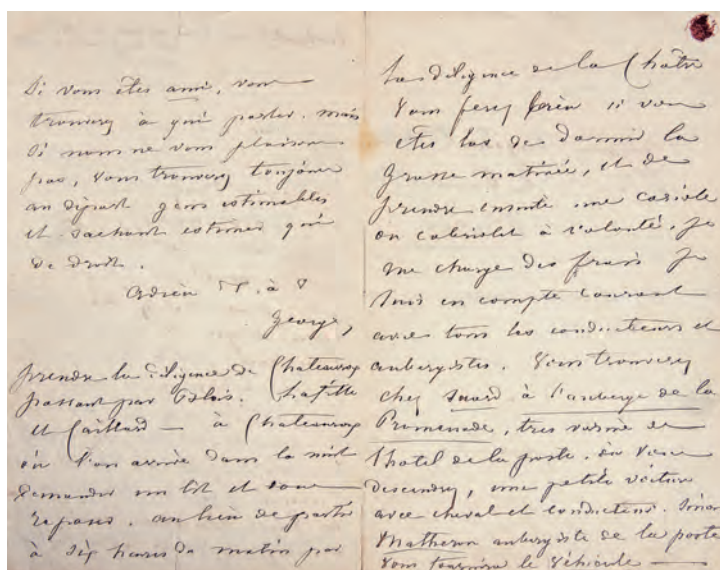 Si vous êtes ami, vous
trouverez à qui parler. mais
Si nous ne vous plaisons
pas, vous trouverez toujours
au départ gens estimables
et sachant estimer qui
de droit.
adieu T. à V
George,
prendre la diligence de Chateauroux
passant par Blois. Lafitte
et Caillard — à Chateauroux
où l'on arrive dans la nuit
demander un lit et vous
reposer. au lieu de partir
à six heures du matin par
La diligence de la Châtre
vous ferez bien si vous
êtes las de dormir la
grasse matinée, et de
prendre ensuite une cariole
ou cabriolet à volonté, je
me charge des frais je
suis en compte courant
avec tous les conducteurs et
aubergistes. vous trouverez
chez Suard à l'auberge de la
Promenade, très voisine de
l'hotel de la poste, où vous
descendrez, une petite voiture
avec cheval et conducteur. Sinon
aubergiste de la poste
vous fournira le véhicule —